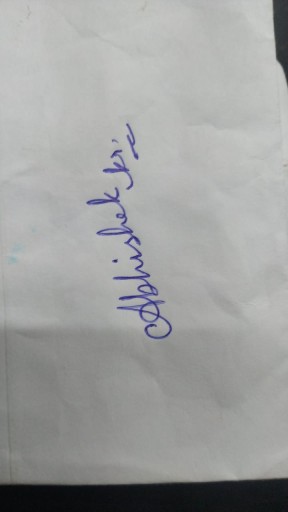 Abhishek Kr.